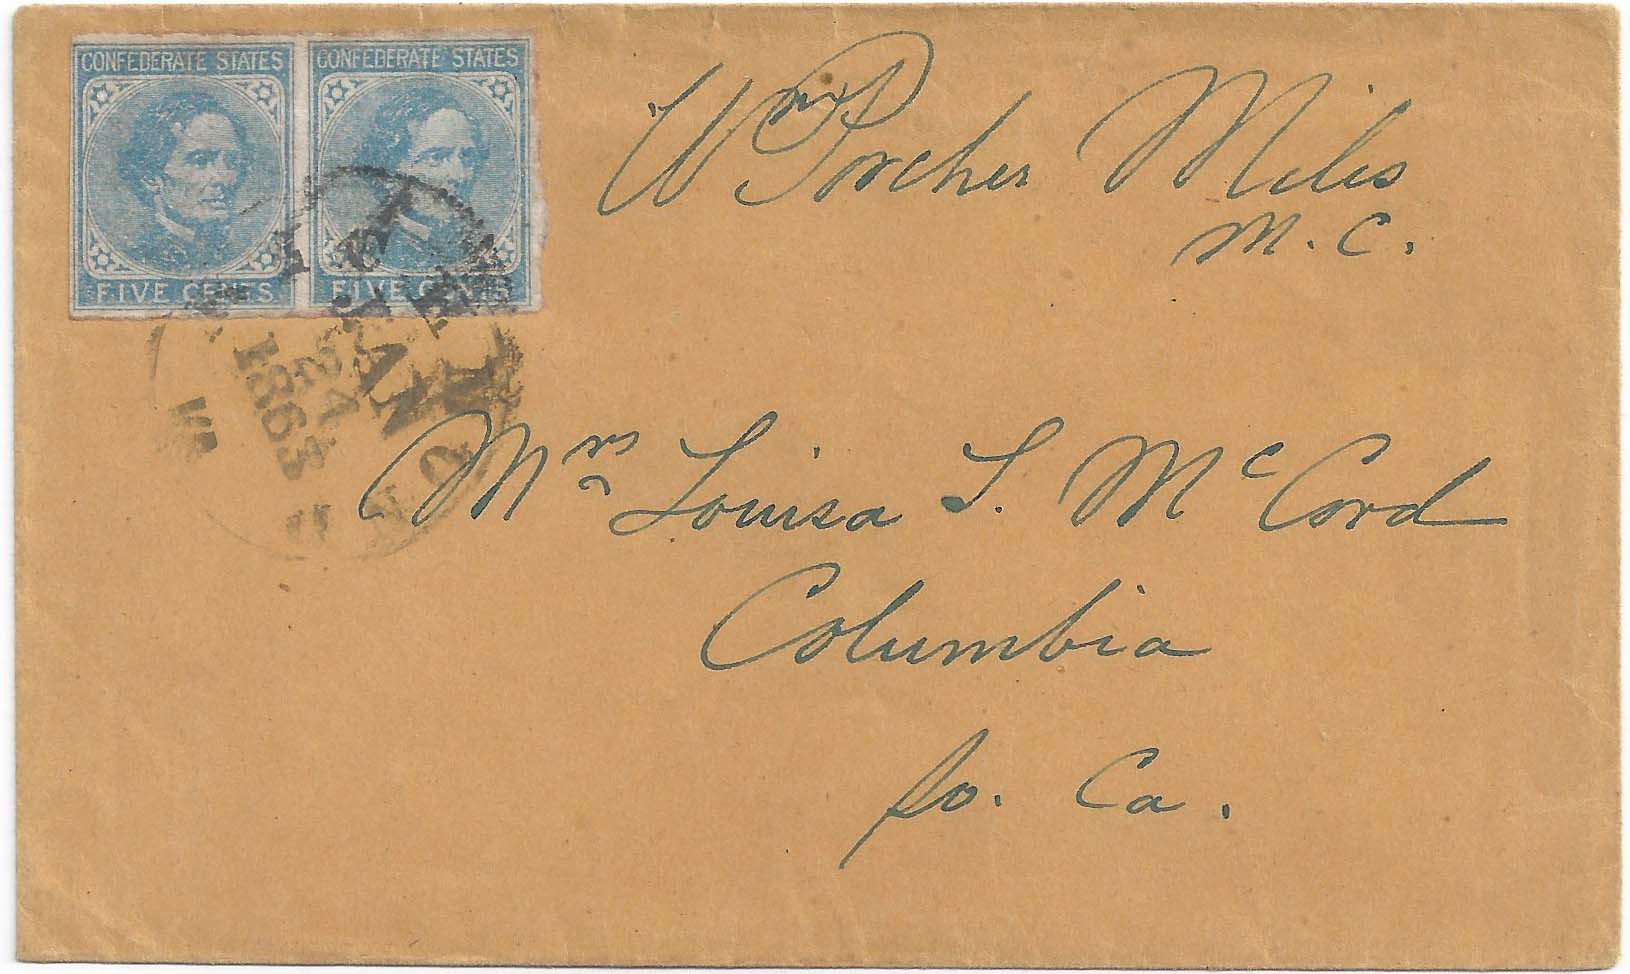 CONFEDERATE STATES
FIVE CENTS
CONFEDERATE STATES
FIVE CENTS
Wm Porcher Miles
M. C.
JAN
24
1863
Mrs Louisa S. McCord
Columbia
So. Ca.